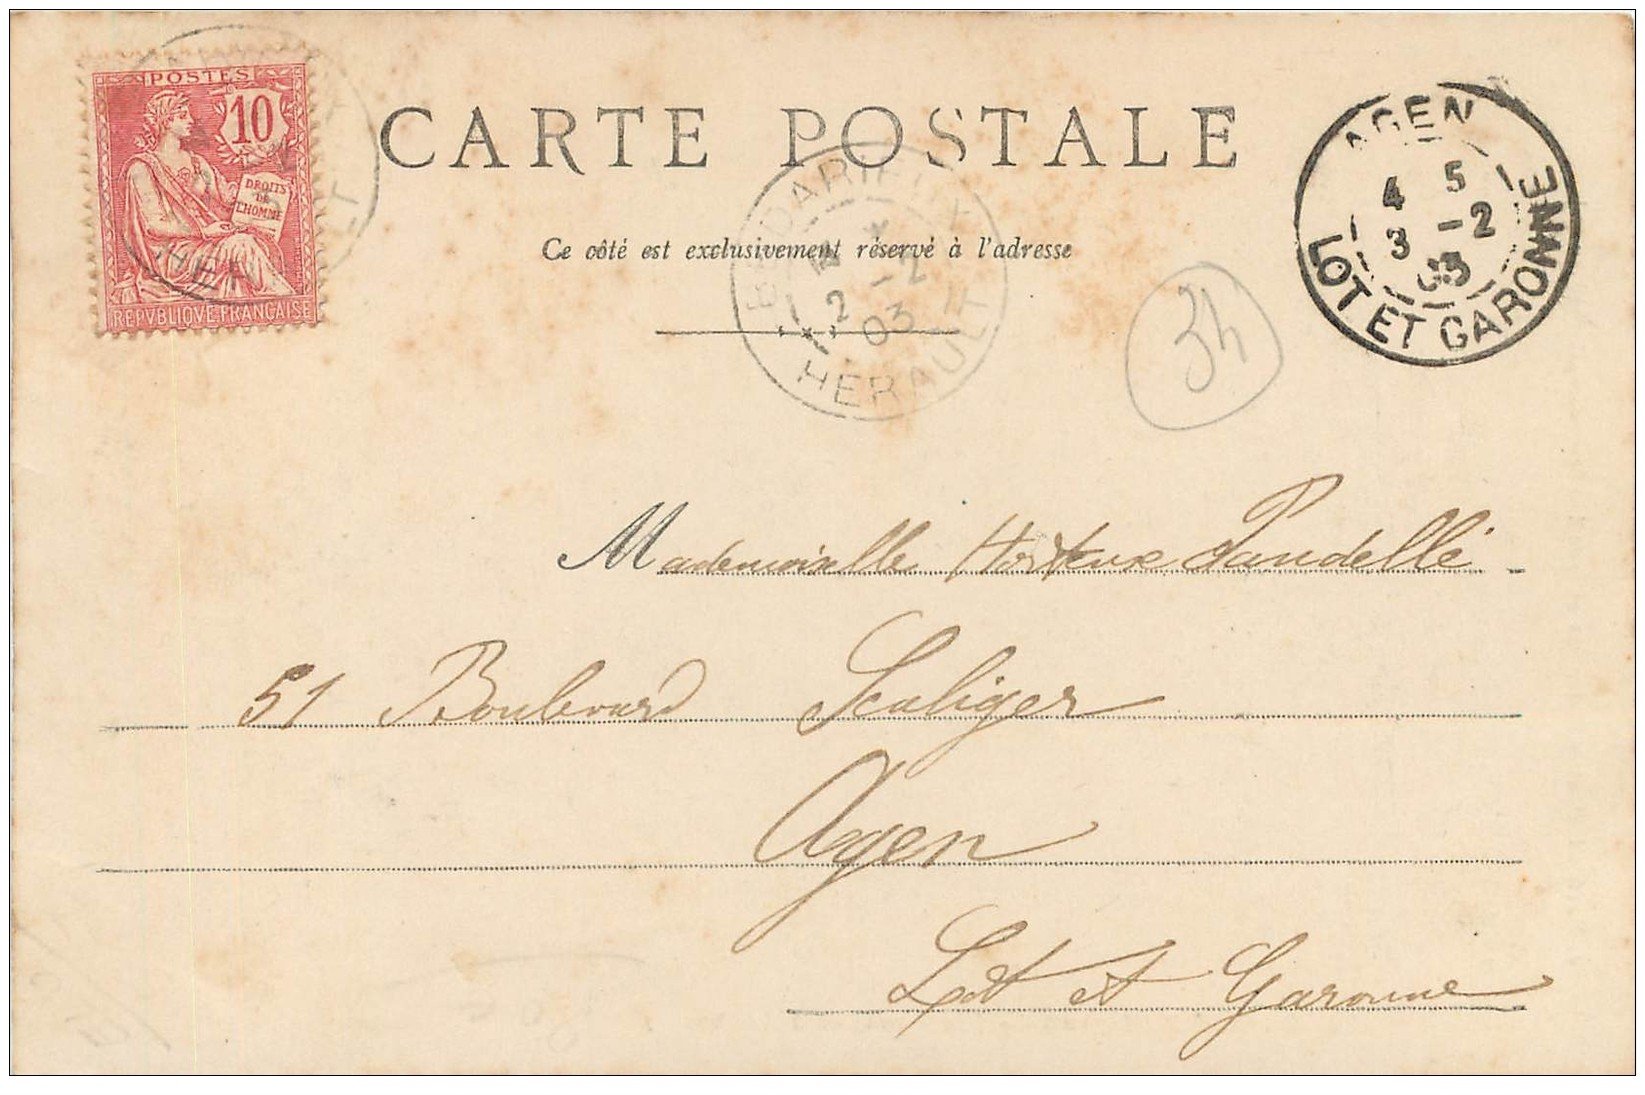 POSTES
10
DROITS
DE
L'HOMME
REPVBLIQVE FRANÇAISE
CARTE POSTALE
Ce côté est exclusivement réservé à l'adresse
BEDARIEUX
2 -2
03
HERAULT
AGEN
4 5
3 -2
03
LOT ET GARONNE
34
Mademoiselle Hortense Pandellé
51 Boulevard Scaliger
Agen
Lot et Garonne